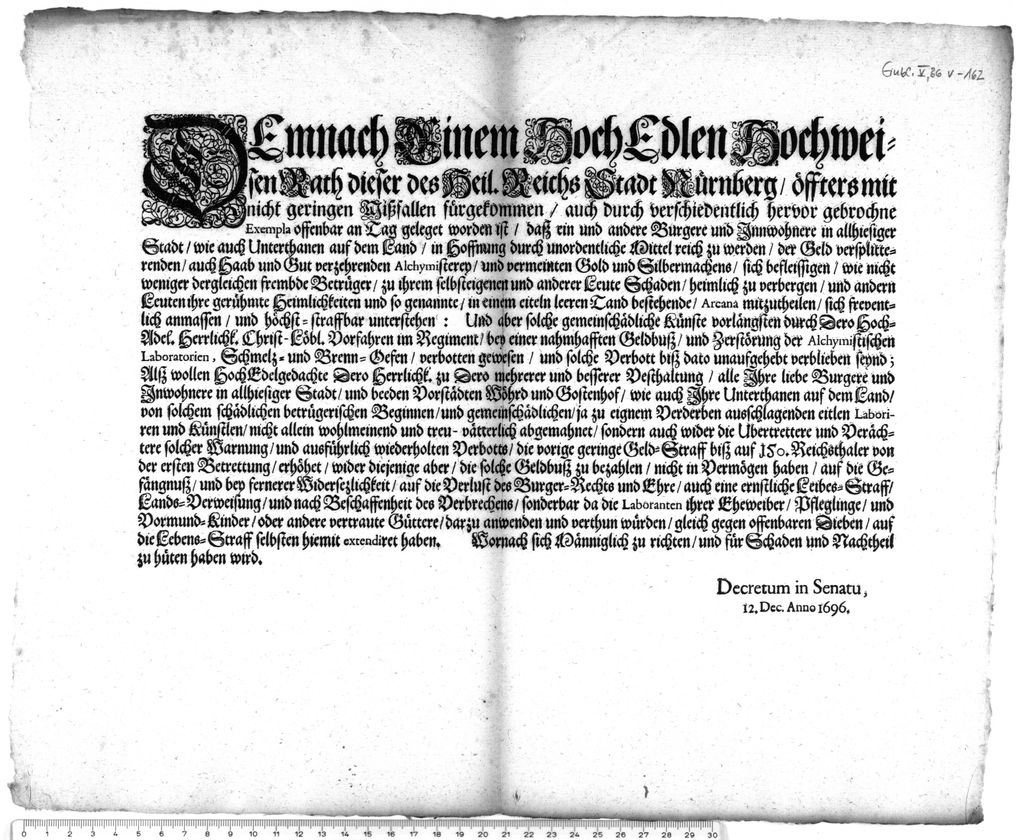 GNBl. V, 86 v - 162
DEmnach Einem Hoch Edlen Hochwei-
sen Rath dieser des Heil. Reichs Stadt Nürnberg / öffters mit
nicht geringen Mißfallen fürgekommen / auch durch verschiedentlich hervor gebrochne
Exempla offenbar an Tag geleget worden ist / daß ein und andere Burgere und Innwohnere in allhiesiger
Stadt / wie auch Unterthanen auf dem Land / in Hoffnung durch unordentliche Mittel reich zu werden / der Geld versplitte-
renden / auch Haab und Gut verzehrenden Alchymisterey / und vermeinten Gold und Silbermachens / sich befleissigen / wie nicht
weniger dergleichen frembde Betrüger / zu ihrem selbsteigenen und anderer Leute Schaden / heimlich zu verbergen / und andern
Leuten ihre gerühmte Heimlichkeiten und so genannte / in einem eiteln leeren Tand bestehende / Arcana mitzutheilen / sich frevent-
lich anmassen / und höchst-straffbar unterstehen : Und aber solche gemeinschädliche Künste vorlängsten durch Dero Hoch-
Adel. Herrlichk. Christ-Löbl. Vorfahren im Regiment / bey einer nahmhafften Geldbuß / und Zerstörung der Alchymistischen
Laboratorien, Schmelz- und Brenn-Oefen / verbotten gewesen / und solche Verbott biß dato unaufgehebt verblieben seynd ;
Alß wollen HochEdelgedachte Dero Herrlichk. zu Dero mehrerer und besserer Vesthaltung / alle Ihre liebe Burgere und
Inwohnere in allhiesiger Stadt / und beeden Vorstädten Wöhrd und Gostenhof / wie auch Ihre Unterthanen auf dem Land /
von solchem schädlichen betrügerischen Beginnen / und gemeinschädlichen / ja zu eignem Verderben ausschlagenden eitlen Labori-
ren und Künstlen / nicht allein wohlmeinend und treu- vätterlich abgemahnet / sondern auch wider die Ubertrettere und Veräch-
tere solcher Warnung / und ausführlich wiederholten Verbotts / die vorige geringe Geld-Straff biß auf 150. Reichsthaler von
der ersten Betrettung / erhöhet / wider diejenige aber / die solche Geldbuß zu bezahlen / nicht in Vermögen haben / auf die Ge-
fängnuß / und bey fernerer Widersezlichkeit / auf die Verlust des Burger-Rechts und Ehre / auch eine ernstliche Leibes-Straff /
Lands-Verweisung / und nach Beschaffenheit des Verbrechens / sonderbar da die Laboranten ihrer Eheweiber / Pfleglinge / und
Vormund-Kinder / oder andere vertraute Güttere / darzu anwenden und verthun würden / gleich gegen offenbaren Dieben / auf
die Lebens-Straff selbsten hiemit extendiret haben. Wornach sich Männiglich zu richten / und für Schaden und Nachtheil
zu hüten haben wird.
Decretum in Senatu,
12. Dec. Anno 1696.
0 1 2 3 4 5 6 7 8 9 10 11 12 13 14 15 16 17 18 19 20 21 22 23 24 25 26 27 28 29 30